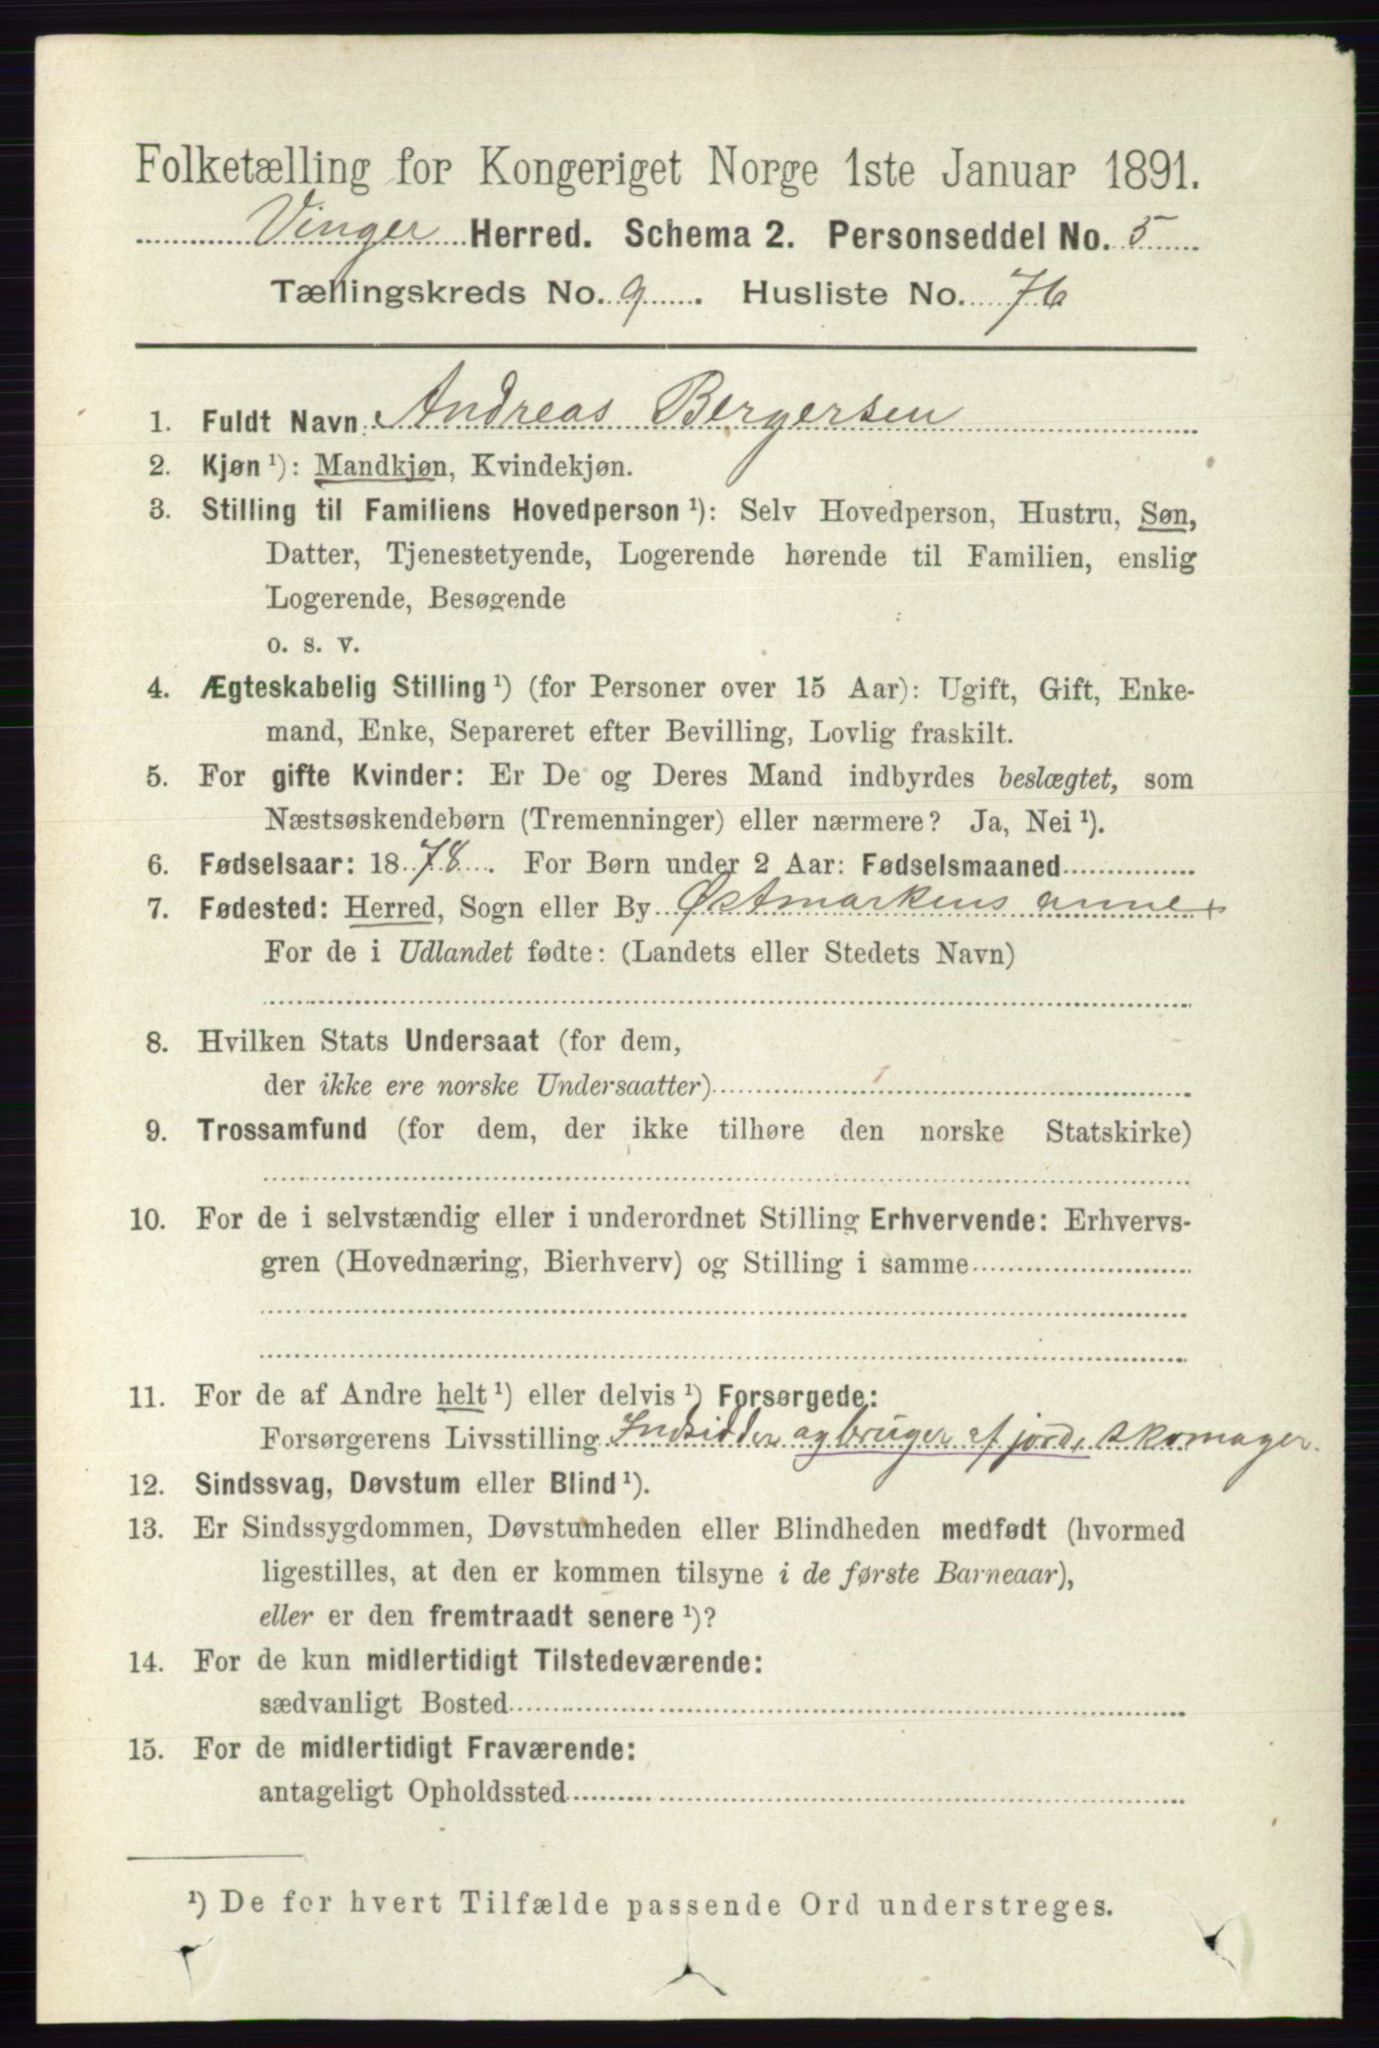 Folketælling for Kongeriget Norge 1ste Januar 1891.
Vinger Herred. Schema 2. Personseddel No. 5
Tællingskreds No. 9. Husliste No. 76
1. Fuldt Navn Andreas Bergersen
2. Kjøn ¹): Mandkjøn, Kvindekjøn.
3. Stilling til Familiens Hovedperson ¹): Selv Hovedperson, Hustru, Søn,
Datter, Tjenestetyende, Logerende hørende til Familien, enslig
Logerende, Besøgende
o. s. v.
4. Ægteskabelig Stilling ¹) (for Personer over 15 Aar): Ugift, Gift, Enke-
mand, Enke, Separeret efter Bevilling, Lovlig fraskilt.
5. For gifte Kvinder: Er De og Deres Mand indbyrdes beslægtet, som
Næstsøskendebørn (Tremenninger) eller nærmere? Ja, Nei ¹).
6. Fødselsaar: 1878. For Børn under 2 Aar: Fødselsmaaned
7. Fødested: Herred, Sogn eller By Østmarkens annex
For de i Udlandet fødte: (Landets eller Stedets Navn)
8. Hvilken Stats Undersaat (for dem,
der ikke ere norske Undersaatter)
9. Trossamfund (for dem, der ikke tilhøre den norske Statskirke)
10. For de i selvstændig eller i underordnet Stilling Erhvervende: Erhvervs-
gren (Hovednæring, Bierhverv) og Stilling i samme
11. For de af Andre helt ¹) eller delvis ¹) Forsørgede:
Forsørgerens Livsstilling Indsidder og bruger af jord, skomager.
12. Sindssvag, Døvstum eller Blind ¹).
13. Er Sindssygdommen, Døvstumheden eller Blindheden medfødt (hvormed
ligestilles, at den er kommen tilsyne i de første Barneaar),
eller er den fremtraadt senere ¹)?
14. For de kun midlertidigt Tilstedeværende:
sædvanligt Bosted
15. For de midlertidigt Fraværende:
antageligt Opholdssted
¹) De for hvert Tilfælde passende Ord understreges.